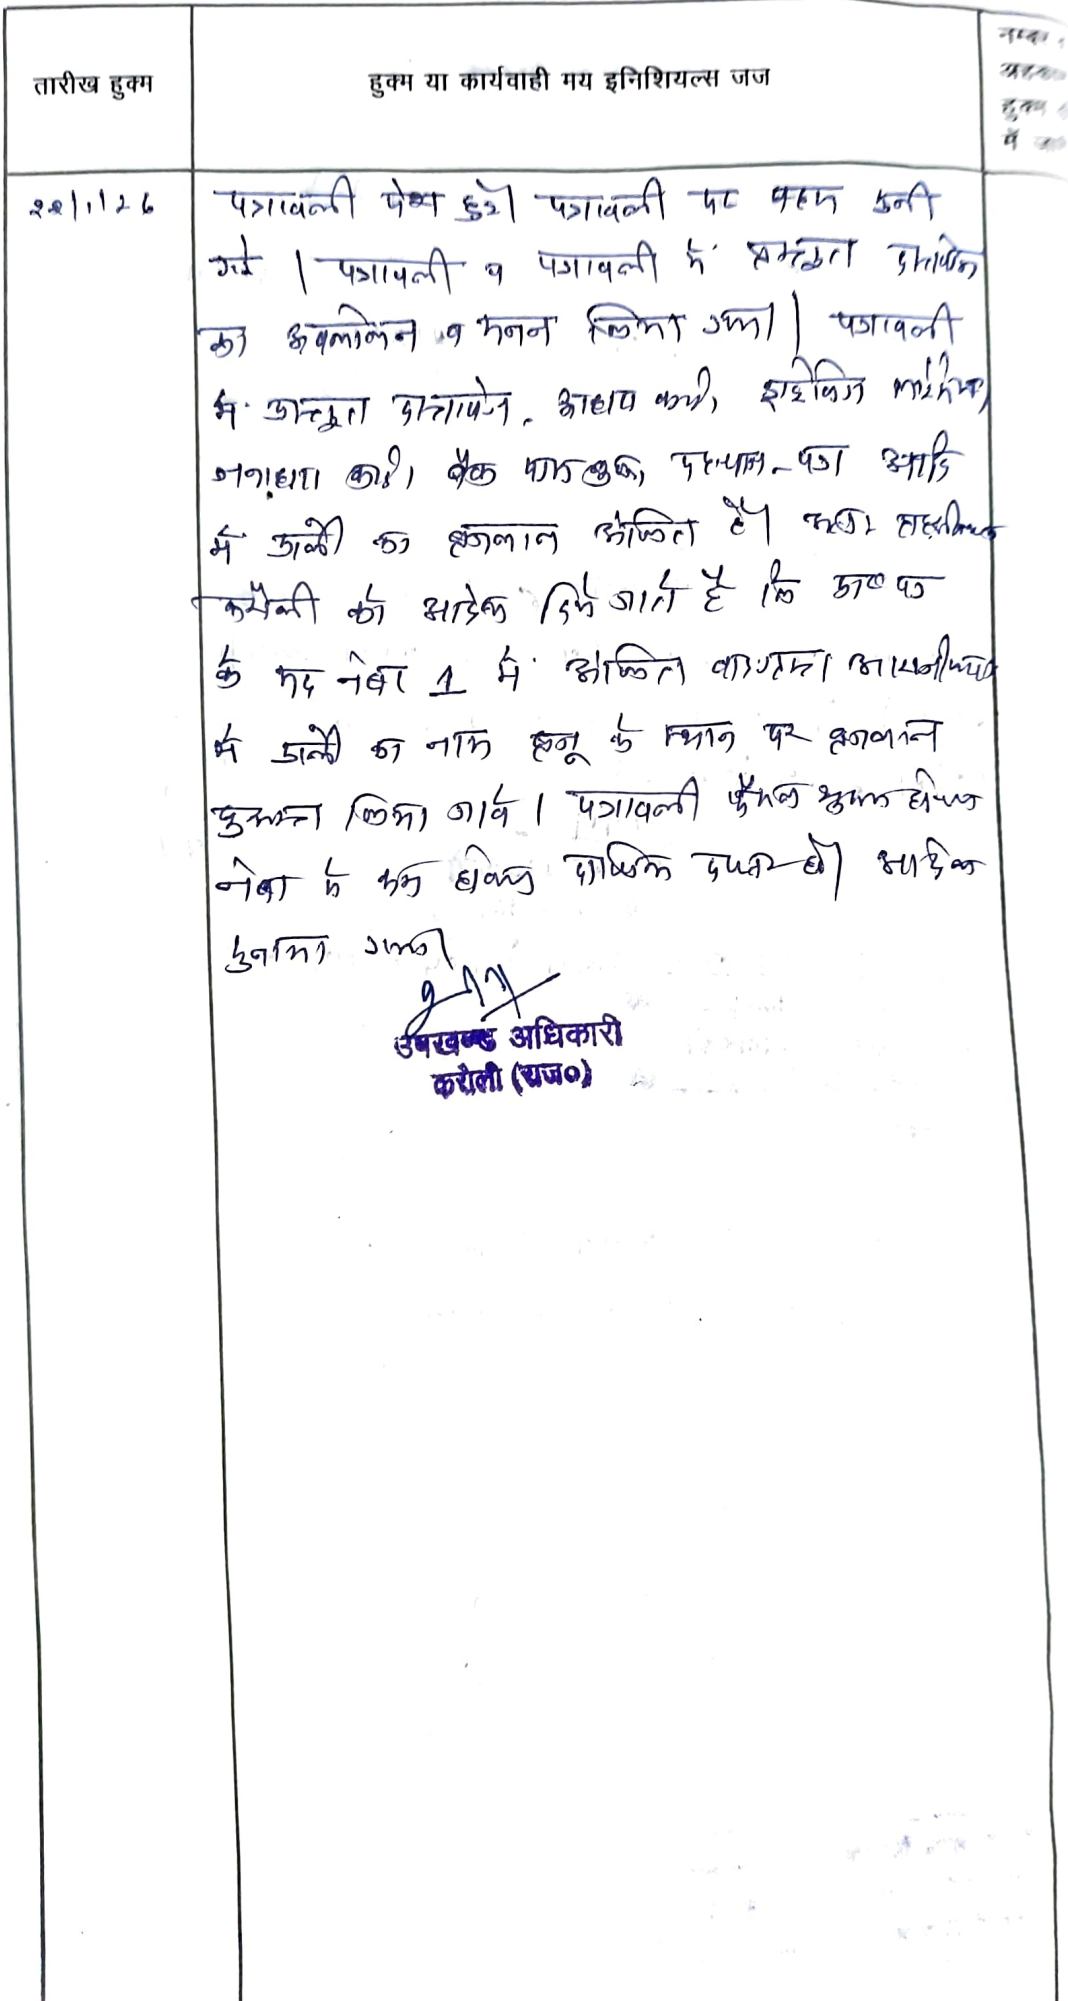 तारीख हुक्म
हुक्म या कार्यवाही मय इनिशियल्स जज
हुक्म
में
22/1/26
पत्रावली पेश हुई। पत्रावली पर बहस सुनी
गई । पत्रावली व पत्रावली में प्रस्तुत दस्तावेज
का अवलोकन व मनन किया गया। पत्रावली
में प्रस्तुत दस्तावेज, आधार कार्ड,
जनाधार कार्ड, बैंक पास बुक, पहचान-पत्र आदि
में प्रार्थी का भगवान अंकित है। अतः तहसीलदार
करौली को आदेश दिये जाते है कि प्रा० पत्र
के मद नंबर 1 में अंकित आराजीयात
में प्रार्थी का नाम के स्थान पर भगवान
दुरुस्त किया जावे । पत्रावली फैसल शुमार होकर
नंबर से कम होकर दाखिल दफ्तर हो। आदेश
सुनाया गया।
उपखण्ड अधिकारी
करौली (राज०)